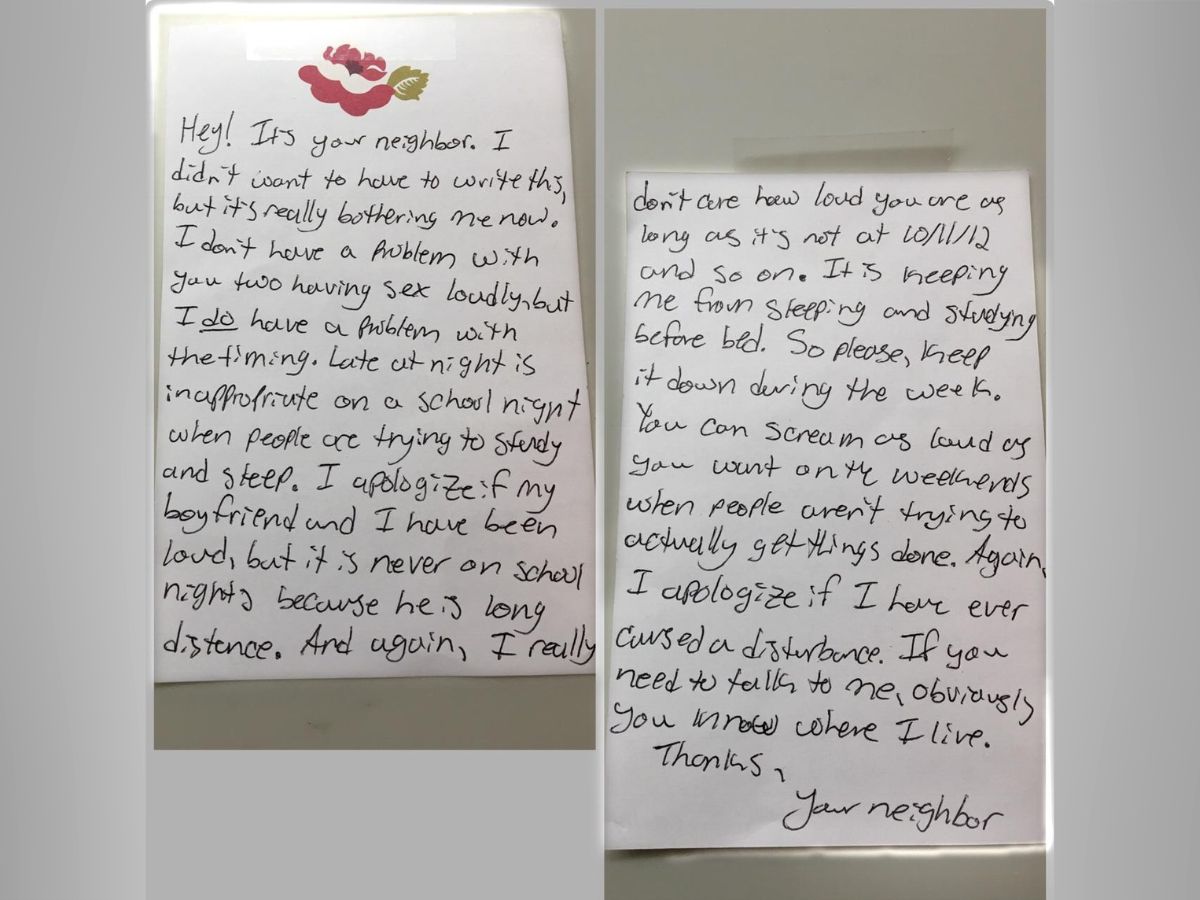 Hey! It's your neighbor. I
didn't want to have to write this,
but it's really bothering me now.
I don't have a problem with
you two having sex loudly, but
I do have a problem with
the timing. Late at night is
inappropriate on a school night
when people are trying to study
and sleep. I apologize if my
boyfriend and I have been
loud, but it is never on school
nights because he is long
distance. And again, I really
don't care how loud you are as
long as it's not at 10/11/12
and so on. It is keeping
me from sleeping and studying
before bed. So please, keep
it down during the week.
You can scream as loud as
you want on the weekends
when people aren't trying to
actually get things done. Again,
I apologize if I have ever
caused a disturbance. If you
need to talk to me, obviously
you know where I live.
Thanks,
Your neighbor